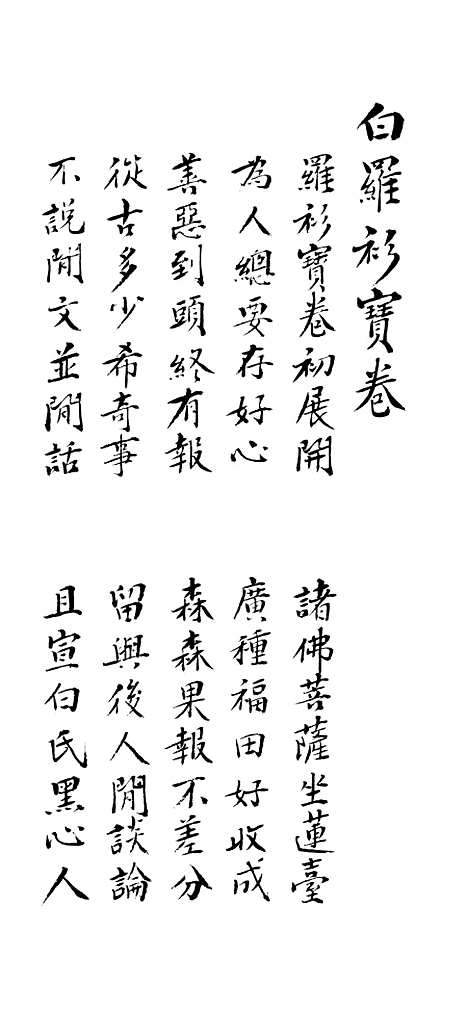 白羅衫寶卷
羅衫寶卷初展開
諸佛菩薩坐蓮臺
為人總要存好心
廣種福田好收成
善惡到頭終有報
森森果報不差分
從古多少希奇事
留與後人閒談論
不說閒文並閒話
且宣白氏黑心人